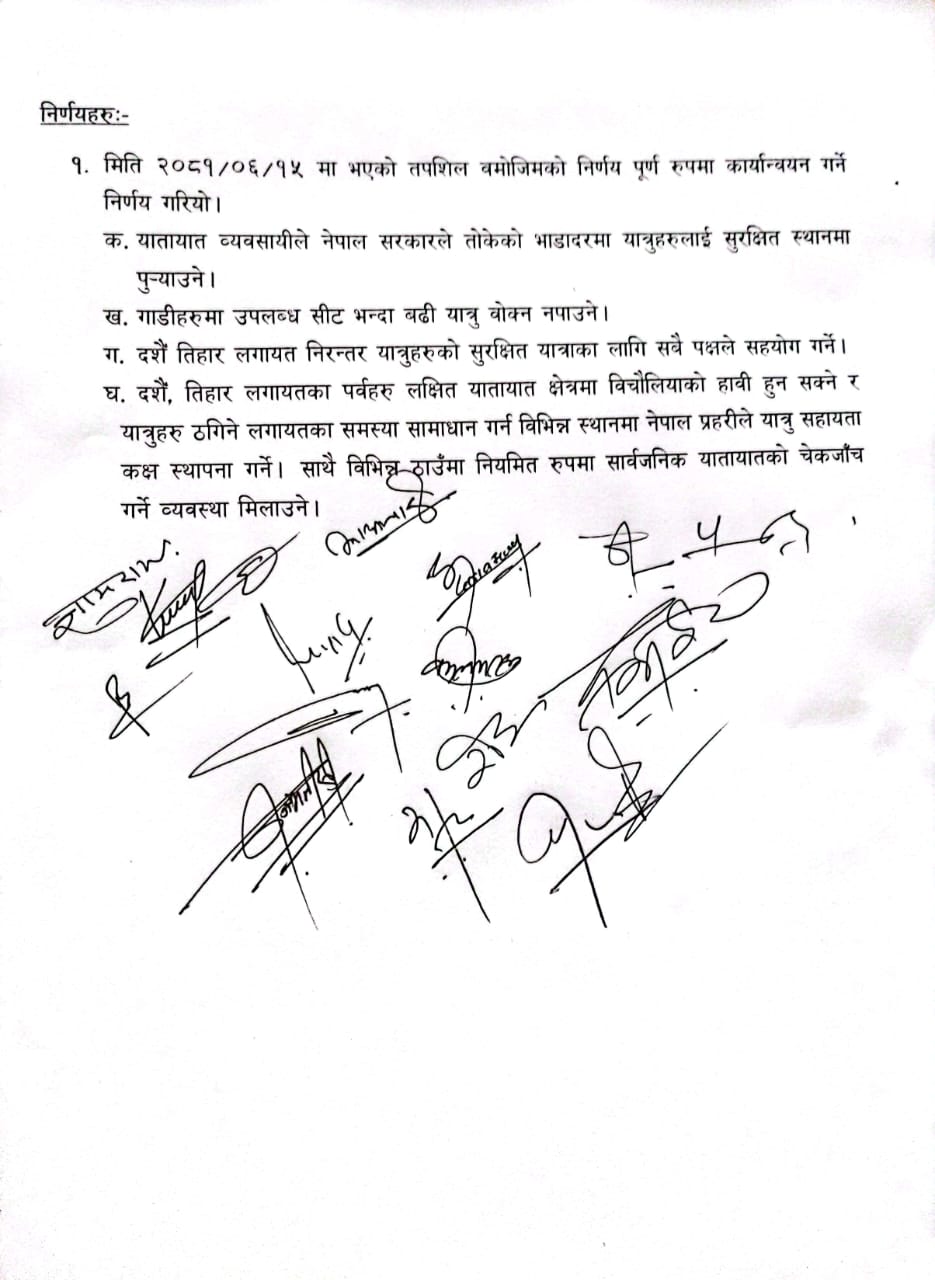 निर्णयहरुः-
१. मिति २०८१/०६/१५ मा भएको तपशिल वमोजिमको निर्णय पूर्ण रुपमा कार्यान्वयन गर्ने
निर्णय गरियो।
क. यातायात व्यवसायीले नेपाल सरकारले तोकेको भाडादरमा यात्रुहरुलाई सुरक्षित स्थानमा
पुर्‍याउने।
ख. गाडीहरुमा उपलब्ध सीट भन्दा बढी यात्रु वोक्न नपाउने।
ग. दशैं तिहार लगायत निरन्तर यात्रुहरुको सुरक्षित यात्राका लागि सबै पक्षले सहयोग गर्ने।
घ. दशैं, तिहार लगायतका पर्वहरु लक्षित यातायात क्षेत्रमा विचौलियाको हावी हुन सक्ने र
यात्रुहरु ठगिने लगायतका समस्या सामाधान गर्न विभिन्न स्थानमा नेपाल प्रहरीले यात्रु सहायता
कक्ष स्थापना गर्ने। साथै विभिन्न ठाउँमा नियमित रुपमा सार्वजनिक यातायातको चेकजाँच
गर्ने व्यवस्था मिलाउने।